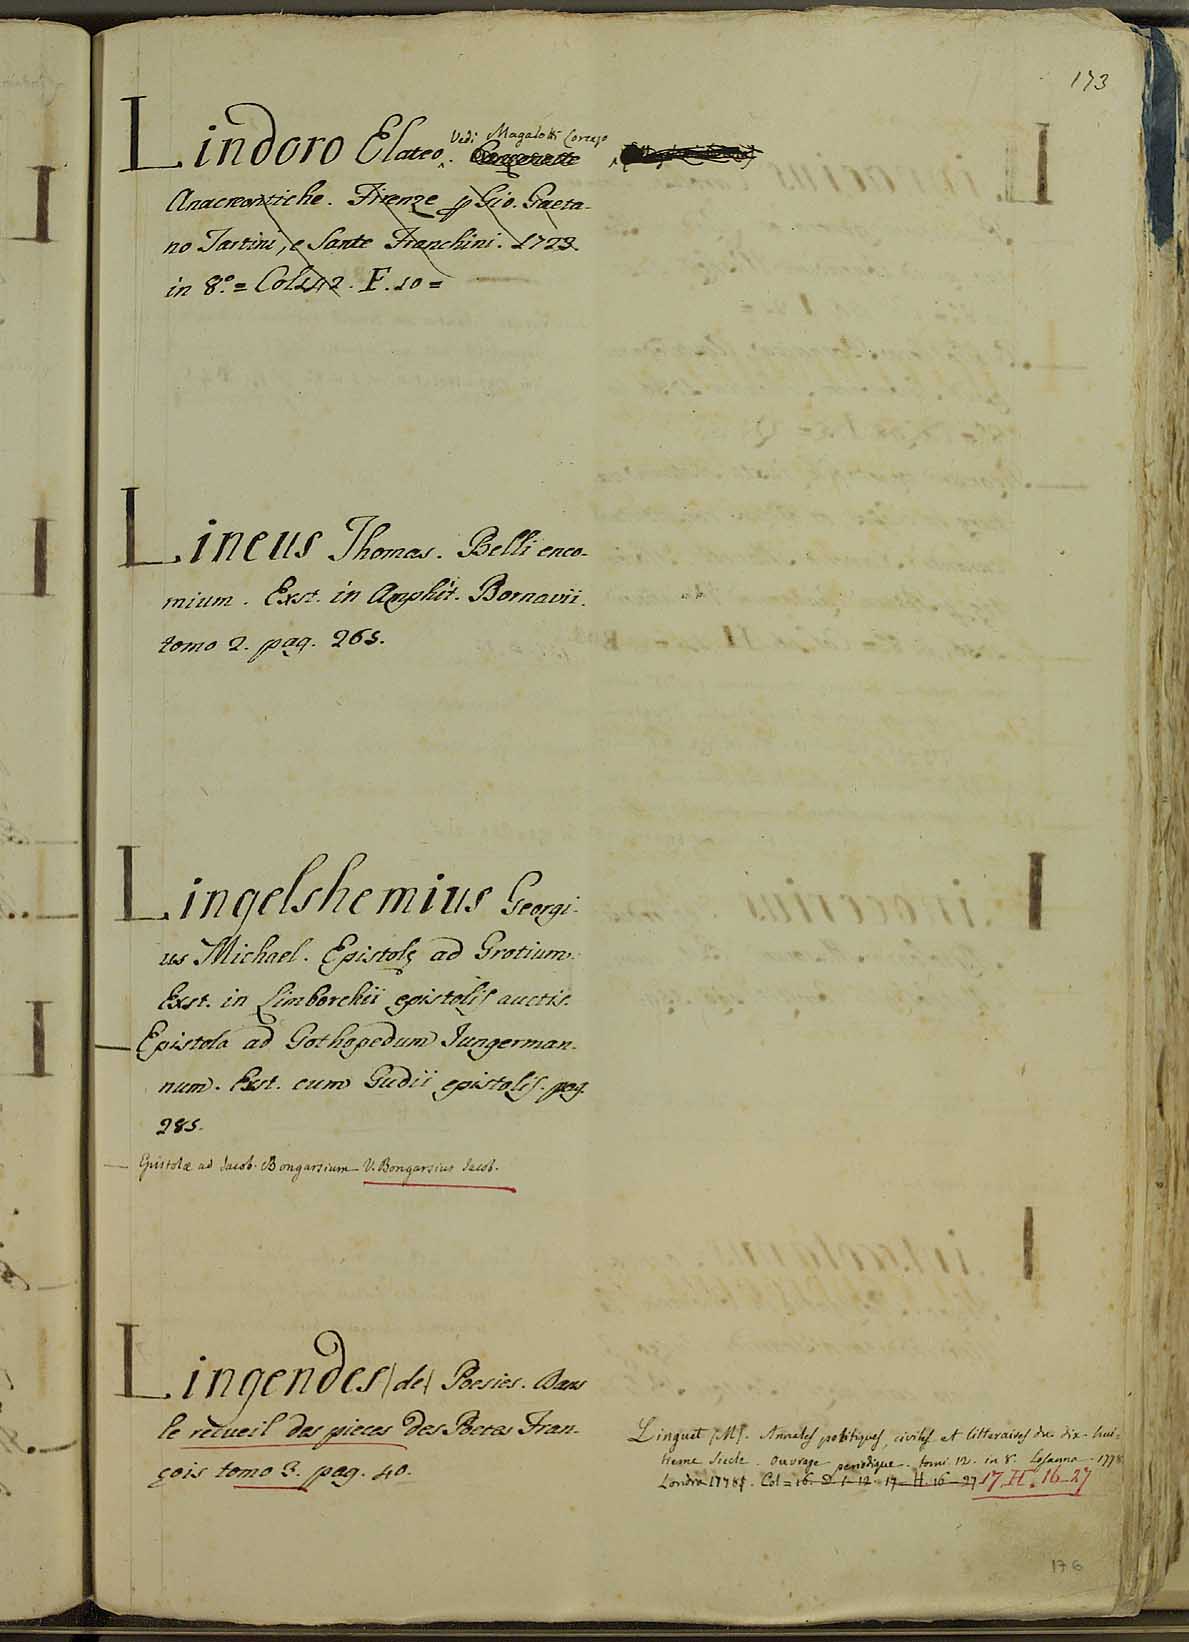 173
Lindoro Elateo. Vedi Magalotti Lorenzo
Canzonette
Anacreontiche. Firenze p Gio. Gaeta-
no Tartini, e Sante Franchini. 1723
in 8.° = Col. 42. F. 10 =
Lineus Thomas. Belli enco-
mium. Exst. in Amphit. Bornavii.
tomo 2. pag. 265.
Lingelshemius Georgi-
us Michael. Epistolę ad Grotium.
Exst. in Limborchii epistolis auctis.
Epistola ad Gothopedum Jungerman-
num. Exst. cum Gudii epistolis. pag.
285.
Epistolæ ad Jacob. Bongarsium V. Bongarsius Jacob.
Lingendes (de) Poesies. Dans
le recueil des pieces des Poetes Fran-
çois tomo 3. pag. 40.
Linguet (M). Annales politiques, civiles et litteraires du dix-hui-
tieme Siecle. Ouvrage periodique. tomi. 12. in 8. Losanna 1778
Londra 1778. Col = 16. D. 1-12 17-H. 16-27 17. H. 16-27
176